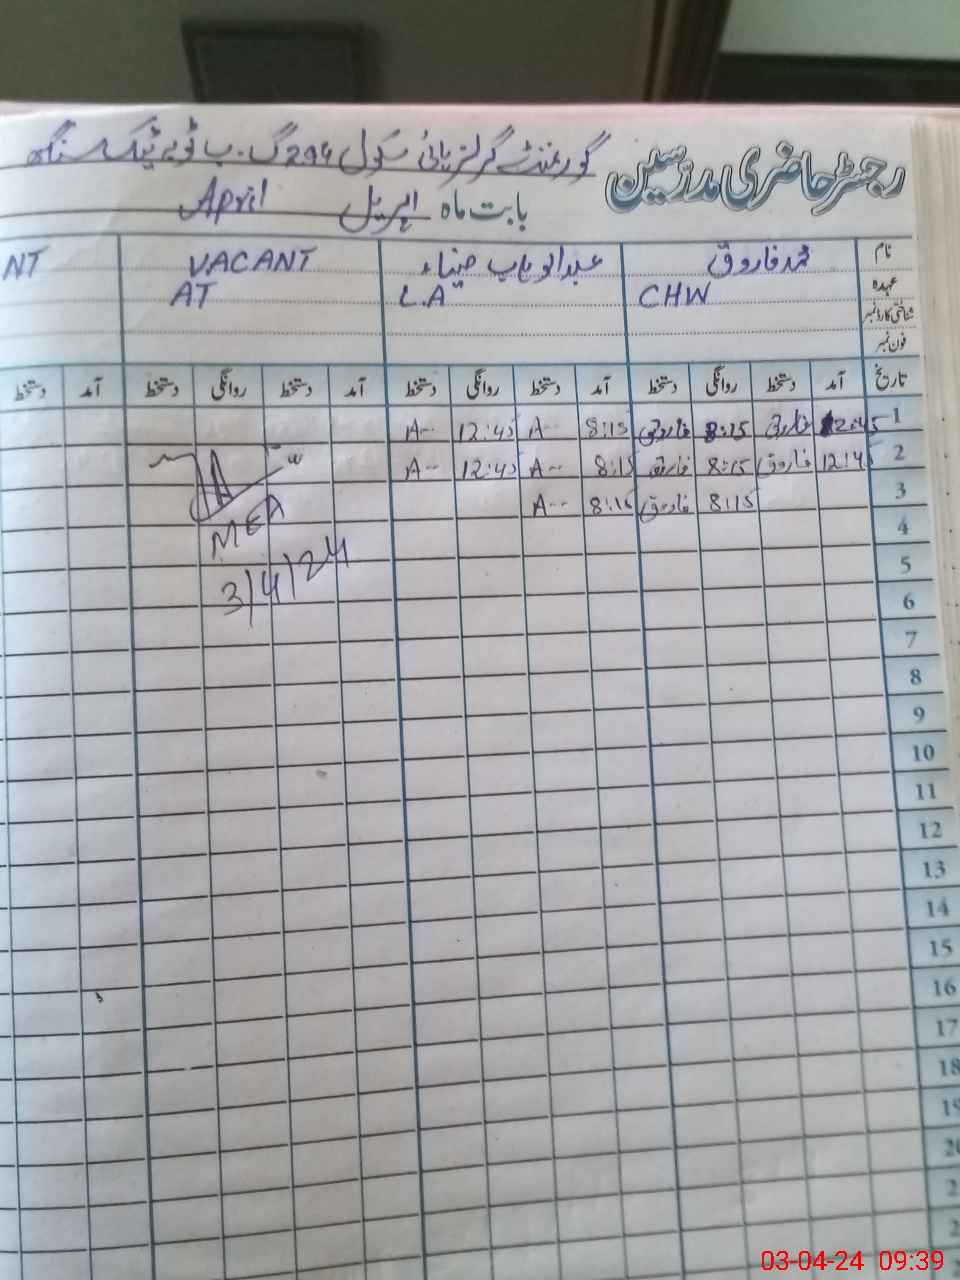 رجسٹر حاضری مدرسین گورنمنٹ گرلز ہائی سکول 294 گ۔ب ٹوبہ ٹیک سنگھ
بابت ماہ اپریل April
نام محمد فاروق عبدالوہاب ضیاء VACANT NT
عہدہ CHW L.A AT
شناختی کارڈ نمبر
فون نمبر
تاریخ آمد دستخط روانگی دستخط آمد دستخط روانگی دستخط آمد دستخط روانگی دستخط آمد دستخط
1 12:45 فاروق 8:15 فاروق 8:15 A-- 12:45 A--
2 12:45 فاروق 8:15 فاروق 8:15 A-- 12:45 A--
3 8:15 فاروق 8:15 A--
MEA
3/4/24
4
5
6
7
8
9
10
11
12
13
14
15
16
17
18
19
03-04-24 09:39